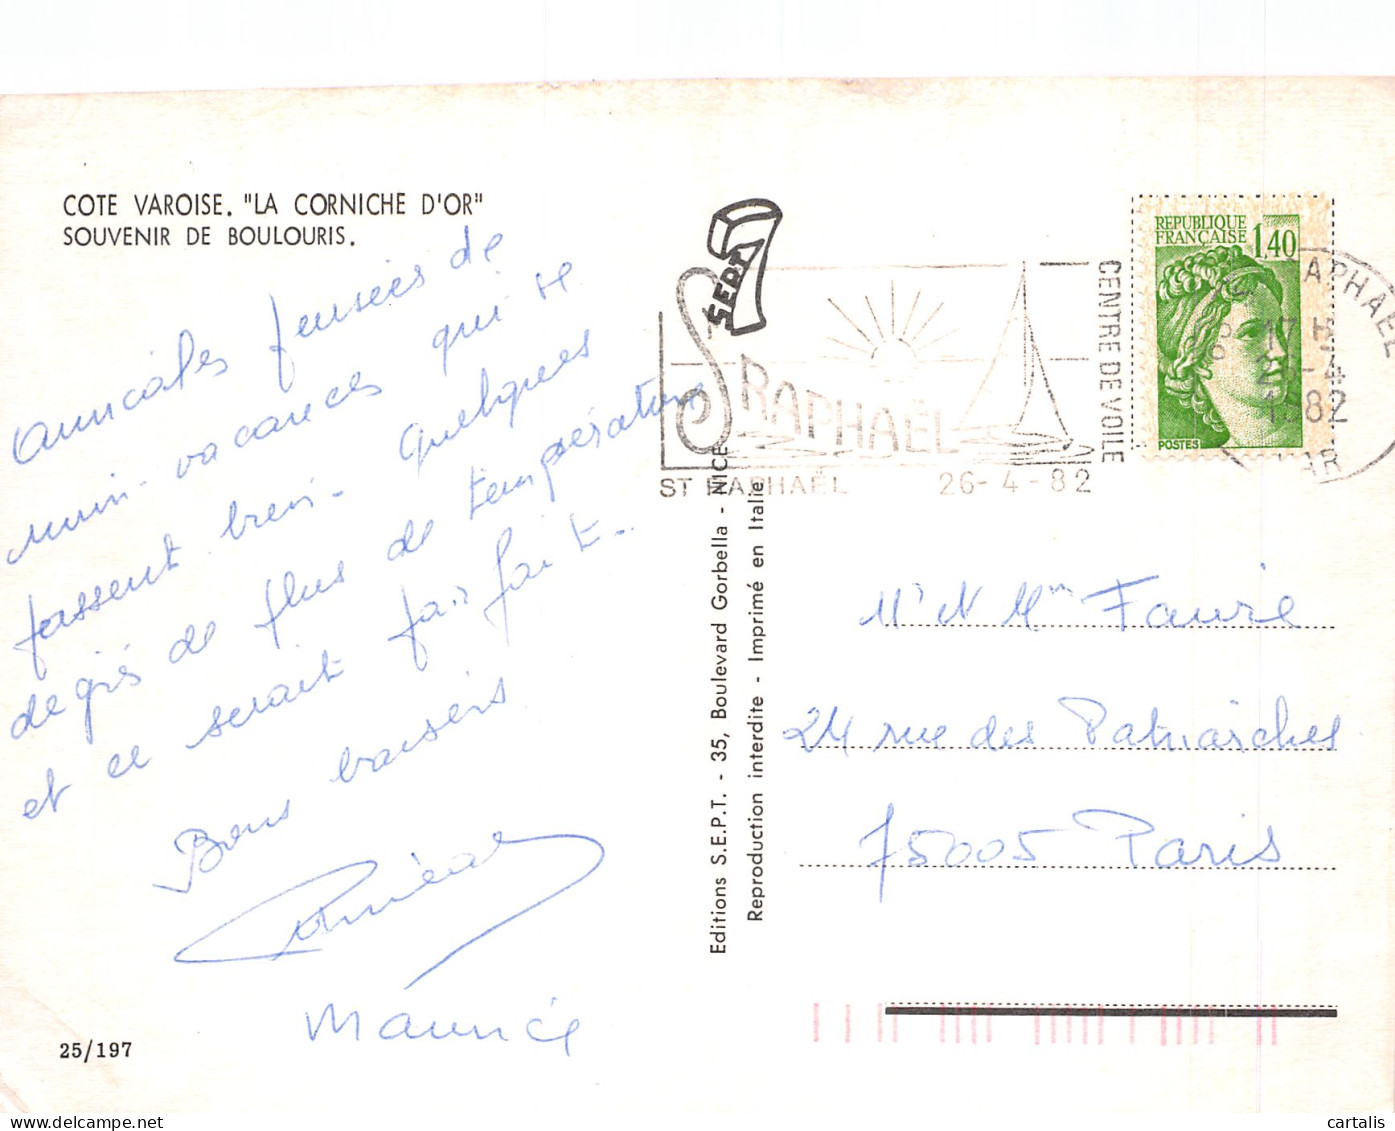 COTE VAROISE. "LA CORNICHE D'OR"
SOUVENIR DE BOULOURIS.
Amicales pensées de
mini-vacances qui se
passent bien - quelques
degrés de plus de température
et ce serait parfait -
Bons baisers
Maurice
25/197
SEPT
ST RAPHAËL
ST RAPHAËL 26-4-82
CENTRE DE VOILE
REPUBLIQUE
FRANCAISE 1,40
POSTES
RAPHAEL
17 H
26-4
1982
VAR
Editions S.E.P.T. - 35, Boulevard Gorbella - NICE
Reproduction interdite - Imprimé en Italie
Mr et Mme Faure
24 rue des Patriarches
75005 Paris
cartalis